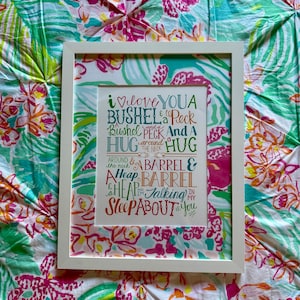 i love YOU A
BUSHEL & a Peck
a Bushel & a PECK And A
HUG around the neck HUG
AROUND the neck & A BARREL &
A Heap BARREL
& A HEAP & I'm Talking IN MY
Sleep ABOUT You